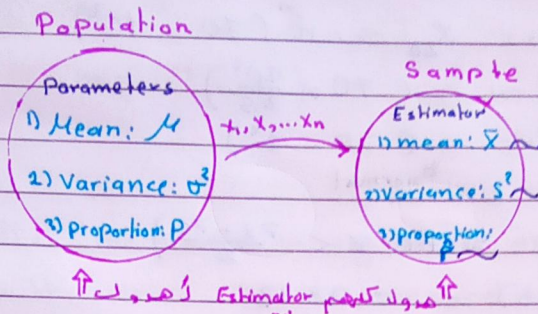 Population
Parameters
1) Mean: μ
2) Variance: σ²
3) proportion: P
x₁, x₂, ... xₙ
Sample
Estimator
1) mean: x̄ ~
2) variance: S² ~
3) proportion:
p̂ ~
Estimator